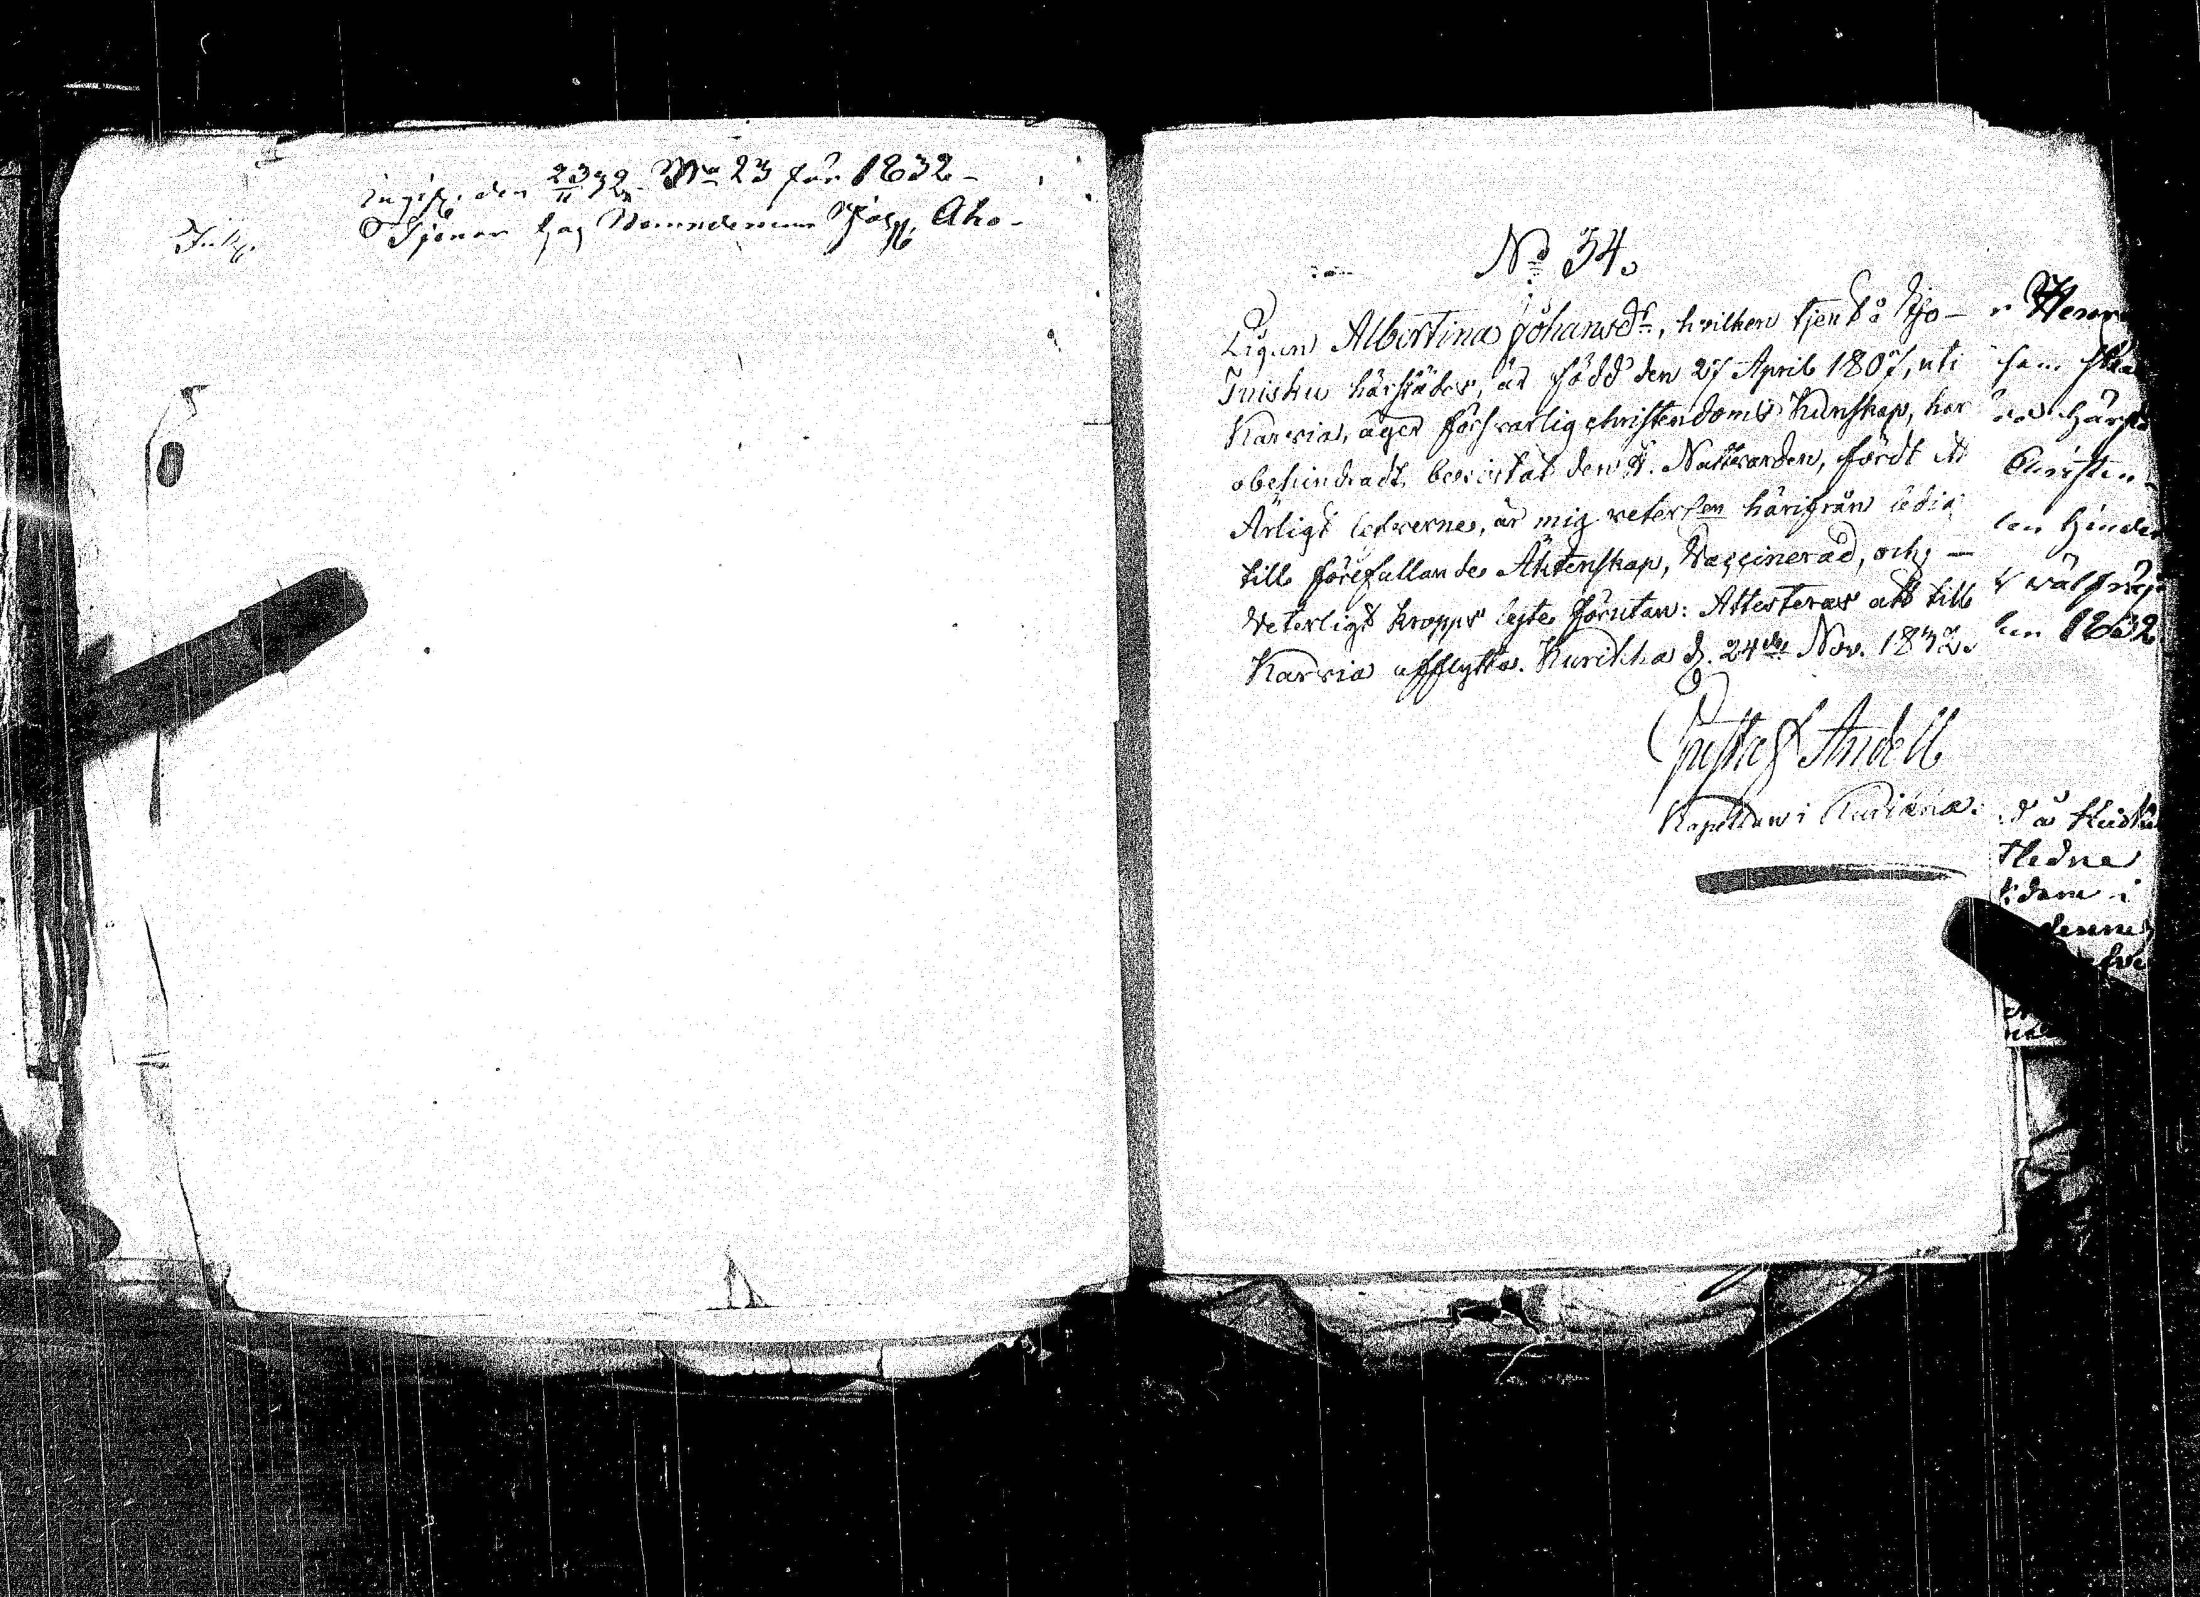 ingifv. den 23/11 32. No 23 för 1832 –
Tjenar hos Nämndeman Aho –
No 34.
Pigan Albertina Johansdr, hvilken tjent å Yo-
Tuisku härstädes, är född den 27 April 1807, uti
Karvia, äger försvarlig christendoms kunskap, har
obehindradt bevistat den H. Nattvarden, fördt ett
Ärligt lefverne, är mig veterl:en härifrån ledig
till förefallande Äktenskap, Vaccinerad, och –
Veterligt kropps lyte förutan: Attesteras att till
Karvia afflytta. Kurikka d. 24de Nov. 1832.
Gustaf Andell
Kapellan i Kurikka.
r Herr
som
Christen-
len hinder
len 1832